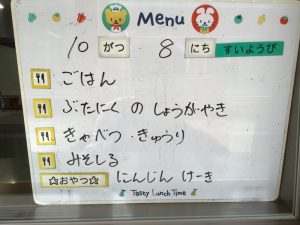 Menu
10 がつ 8 にち すいようび
ごはん
ぶたにく の しょうがやき
きゃべつ・きゅうり
みそしる
☆おやつ☆ にんじん けーき
Tasty Lunch Time